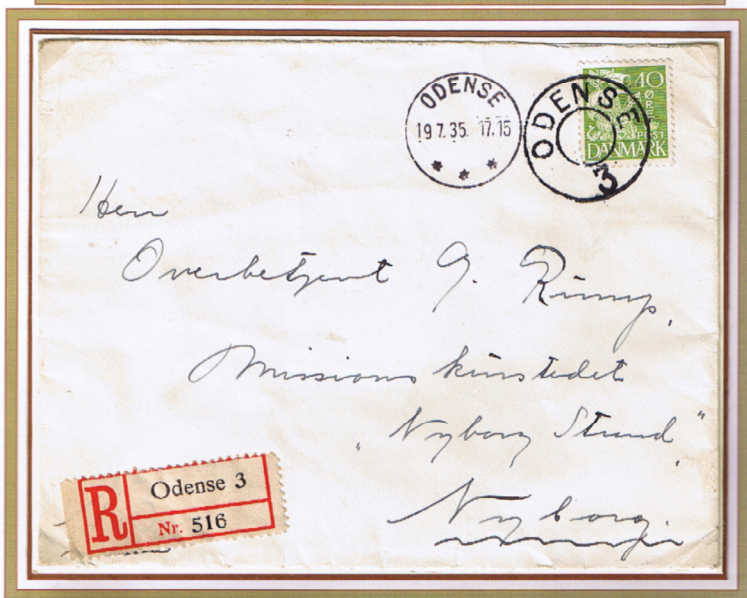 ODENSE
19 7.35. 17.15
* * *
ODENSE
3
40
ØRE
POST
DANMARK
Herr
Overbetjent G. Rump,
Missions
"Nyborg Strand"
Nyborg.
R
Odense 3
Nr. 516